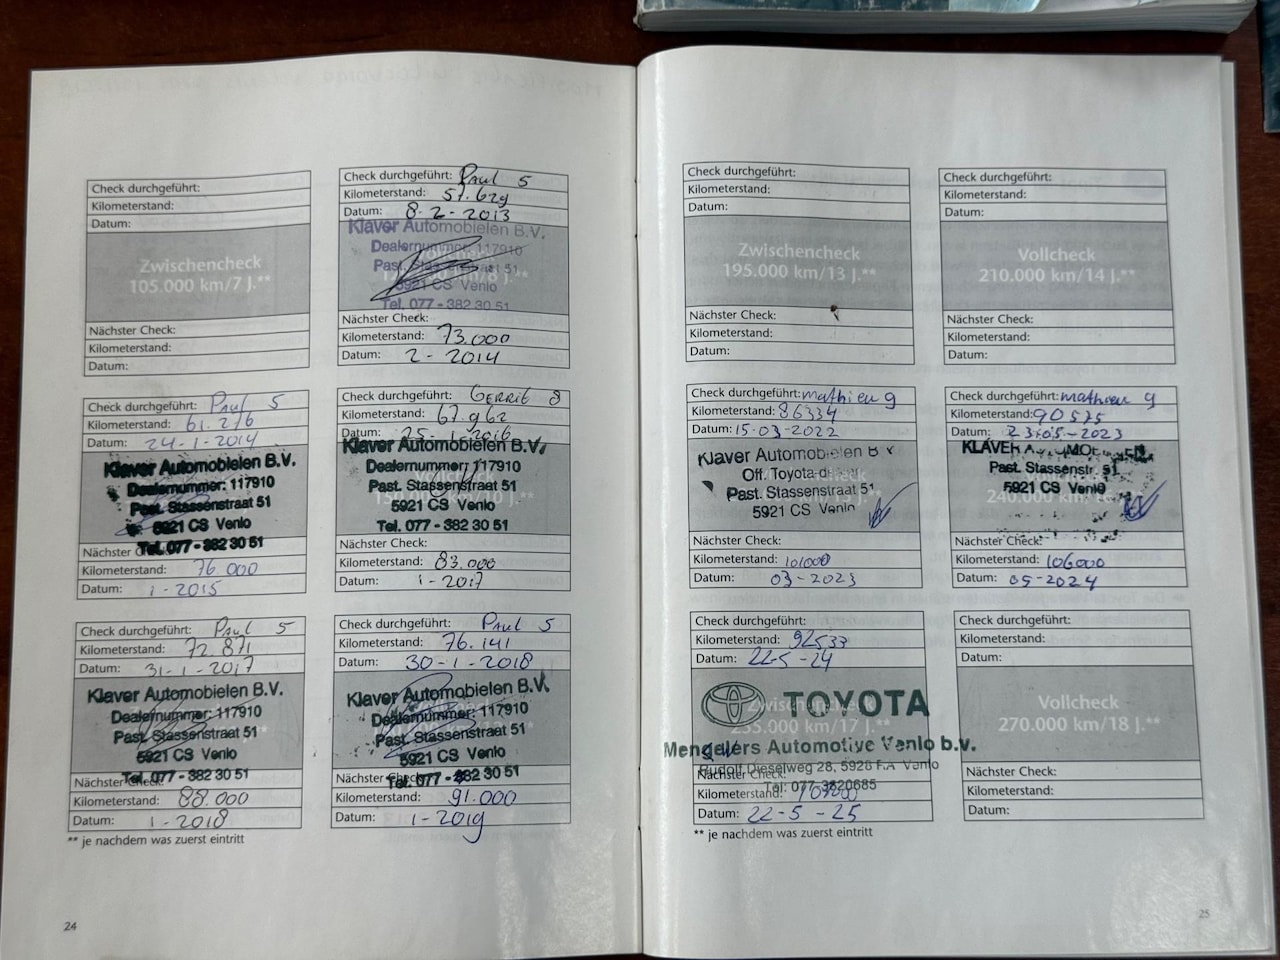 Check durchgeführt:
Kilometerstand:
Datum:
Zwischencheck
105.000 km/7 J.**
Nächster Check:
Kilometerstand:
Datum:
Check durchgeführt: Paul S
Kilometerstand: 57.629
Datum: 8-2-2013
Klaver Automobielen B.V.
Dealernummer: 117910
Past. Stassenstraat 51
5921 CS Venlo
Tel. 077 - 382 30 51
Nächster Check:
Kilometerstand: 73.000
Datum: 2-2014
Check durchgeführt: Paul S
Kilometerstand: 61.276
Datum: 24-1-2014
Klaver Automobielen B.V.
Dealernummer: 117910
Past. Stassenstraat 51
5921 CS Venlo
Tel. 077 - 382 30 51
Nächster
Kilometerstand: 76.000
Datum: 1-2015
Check durchgeführt: Gerrit
Kilometerstand: 67.962
25-1-2016
Klaver Automobielen B.V.
Dealernummer: 117910
Past. Stassenstraat 51
5921 CS Venlo
Tel. 077 - 382 30 51
Nächster Check:
Kilometerstand: 83.000
Datum: 1-2017
Check durchgeführt: Paul S
Kilometerstand: 72.871
Datum: 31-1-2017
Klaver Automobielen B.V.
Dealernummer: 117910
Past. Stassenstraat 51
5921 CS Venlo
Tel. 077 - 382 30 51
Nächster Check:
Kilometerstand: 88.000
Datum: 1-2018
Check durchgeführt: Paul S
Kilometerstand: 76.141
Datum: 30-1-2018
Klaver Automobielen B.V.
Dealernummer: 117910
Past. Stassenstraat 51
5921 CS Venlo
Tel. 077 - 382 30 51
Nächster Check:
Kilometerstand: 91.000
Datum: 1-2019
** je nachdem was zuerst eintritt
24
Check durchgeführt:
Kilometerstand:
Datum:
Zwischencheck
195.000 km/13 J.**
Nächster Check:
Kilometerstand:
Datum:
Check durchgeführt:
Kilometerstand:
Datum:
Vollcheck
210.000 km/14 J.**
Nächster Check:
Kilometerstand:
Datum:
Check durchgeführt: mathieu g
Kilometerstand: 86334
Datum: 15-03-2022
Klaver Automobielen B V
Off. Toyota
Past. Stassenstraat 51
5921 CS Venlo
Nächster Check:
Kilometerstand: 101000
Datum: 03-2023
Check durchgeführt: mathieu g
Kilometerstand: 90575
Datum: 23-05-2023
KLAVER
Past. Stassenstr. 51
5921 CS Venlo
240.000 km
Nächster Check:
Kilometerstand: 106000
Datum: 05-2024
Check durchgeführt:
Kilometerstand: 92533
Datum: 22-5-24
TOYOTA
Zwischencheck
255.000 km/17 J.**
Mengelers Automotive Venlo b.v.
Rudolf Dieselweg 28, 5928 RA Venlo
Tel: 077-3820685
Nächster Check:
Kilometerstand:
Datum: 22-5-25
Check durchgeführt:
Kilometerstand:
Datum:
Vollcheck
270.000 km/18 J.**
Nächster Check:
Kilometerstand:
Datum:
** je nachdem was zuerst eintritt
25